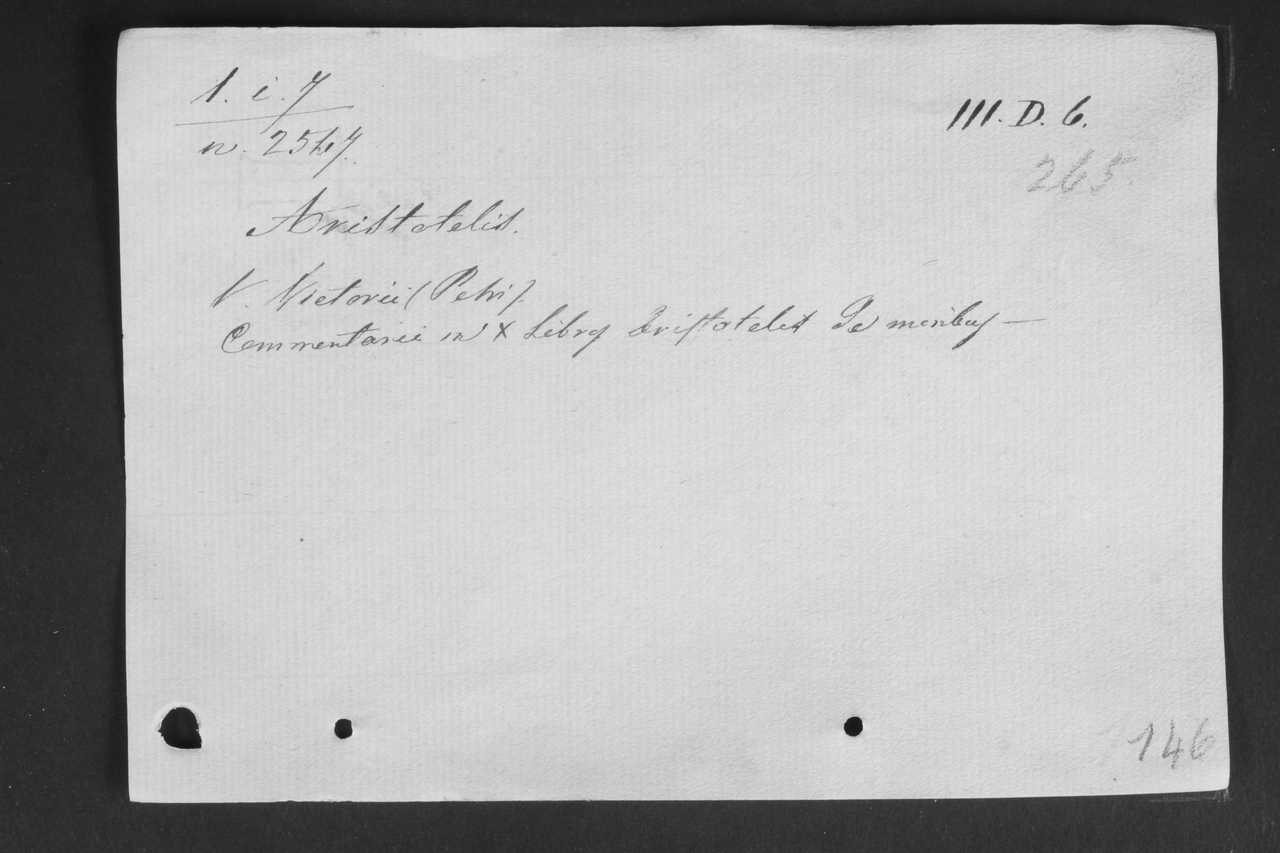 1. i. 7
n. 2547.
III. D. 6.
265.
Aristotelis.
V. Victorii (Petri).
Commentarii in X Libros Aristotelis De moribus —
146